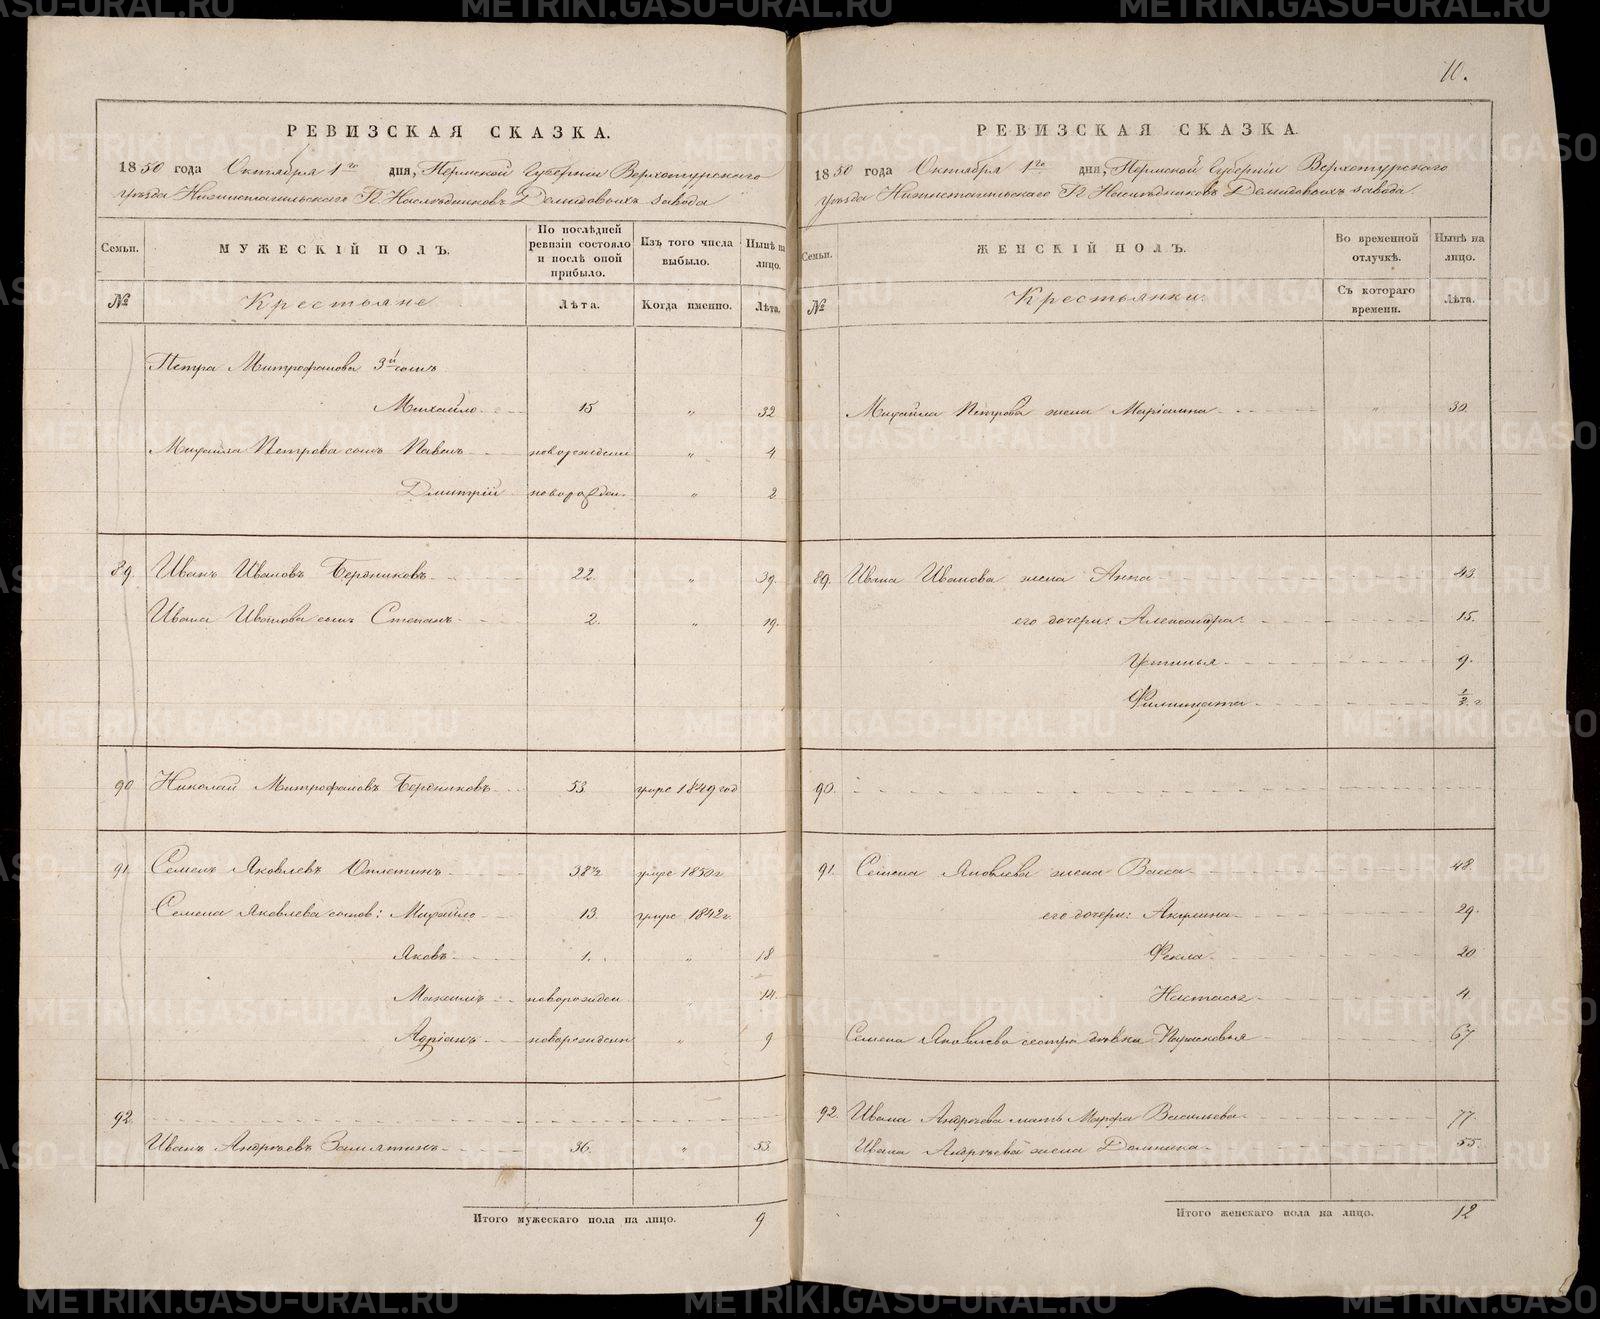 10.
РЕВИЗСКАЯ СКАЗКА.
1850 года Октября 1го дня, Пермской Губерніи Верхотурскаго
уѣзда Нижнетагильскаго Г. Наслѣдниковъ Демидовыхъ завода
Семьи.
МУЖЕСКІЙ ПОЛЪ.
По послѣдней ревизіи состояло и послѣ оной прибыло.
Изъ того числа выбыло.
Нынѣ на лицо.
№ Крестьяне Лѣта. Когда именно. Лѣта.
Петра Митрофанова 3й сынъ
Михайло 15 " 32
Михайла Петрова сынъ Павелъ новорожден " 4
Дмитрій новорожден. " 2
89. Иванъ Ивановъ Бердниковъ 22. " 39.
Ивана Иванова сынъ Степанъ 2. " 19.
90 Николай Митрофановъ Бердниковъ 53. умре 1849 год
91 Семенъ Яковлевъ 38½ умре 1850 г
Семена Яковлева сынов: Михайло 13. умре 1842 г.
Яковъ 1. " 18
Максимъ новорожден " 14.
Адріанъ новорожден " 9
92
Иванъ Андреевъ Замятинъ 36. " 53.
Итого мужескаго пола на лицо. 9
РЕВИЗСКАЯ СКАЗКА.
1850 года Октября 1го дня, Пермской Губерніи Верхотурскаго
уѣзда Нижнетагильскаго Г. Наслѣдниковъ Демидовыхъ завода
Семьи.
ЖЕНСКІЙ ПОЛЪ.
Во временной отлучкѣ.
Нынѣ на лицо.
№ Крестьянки. Съ котораго времени. Лѣта.
Михайла Петрова жена Маріанна " 30.
89. Ивана Иванова жена Анна 43.
его дочери: Александра 15.
Устинья 9.
½ г
90.
91. Семена Яковлева жена Васса 48.
его дочери: Акулина 29.
Фекла 20
Настасья 4.
Семена Яковлева сестра дѣвка Парасковья 67
92. Ивана Андреева мать Марфа Васильева 77.
Ивана Андреева жена Домника 55.
Итого женскаго пола на лицо. 12
METRIKI.GASO-URAL.RU